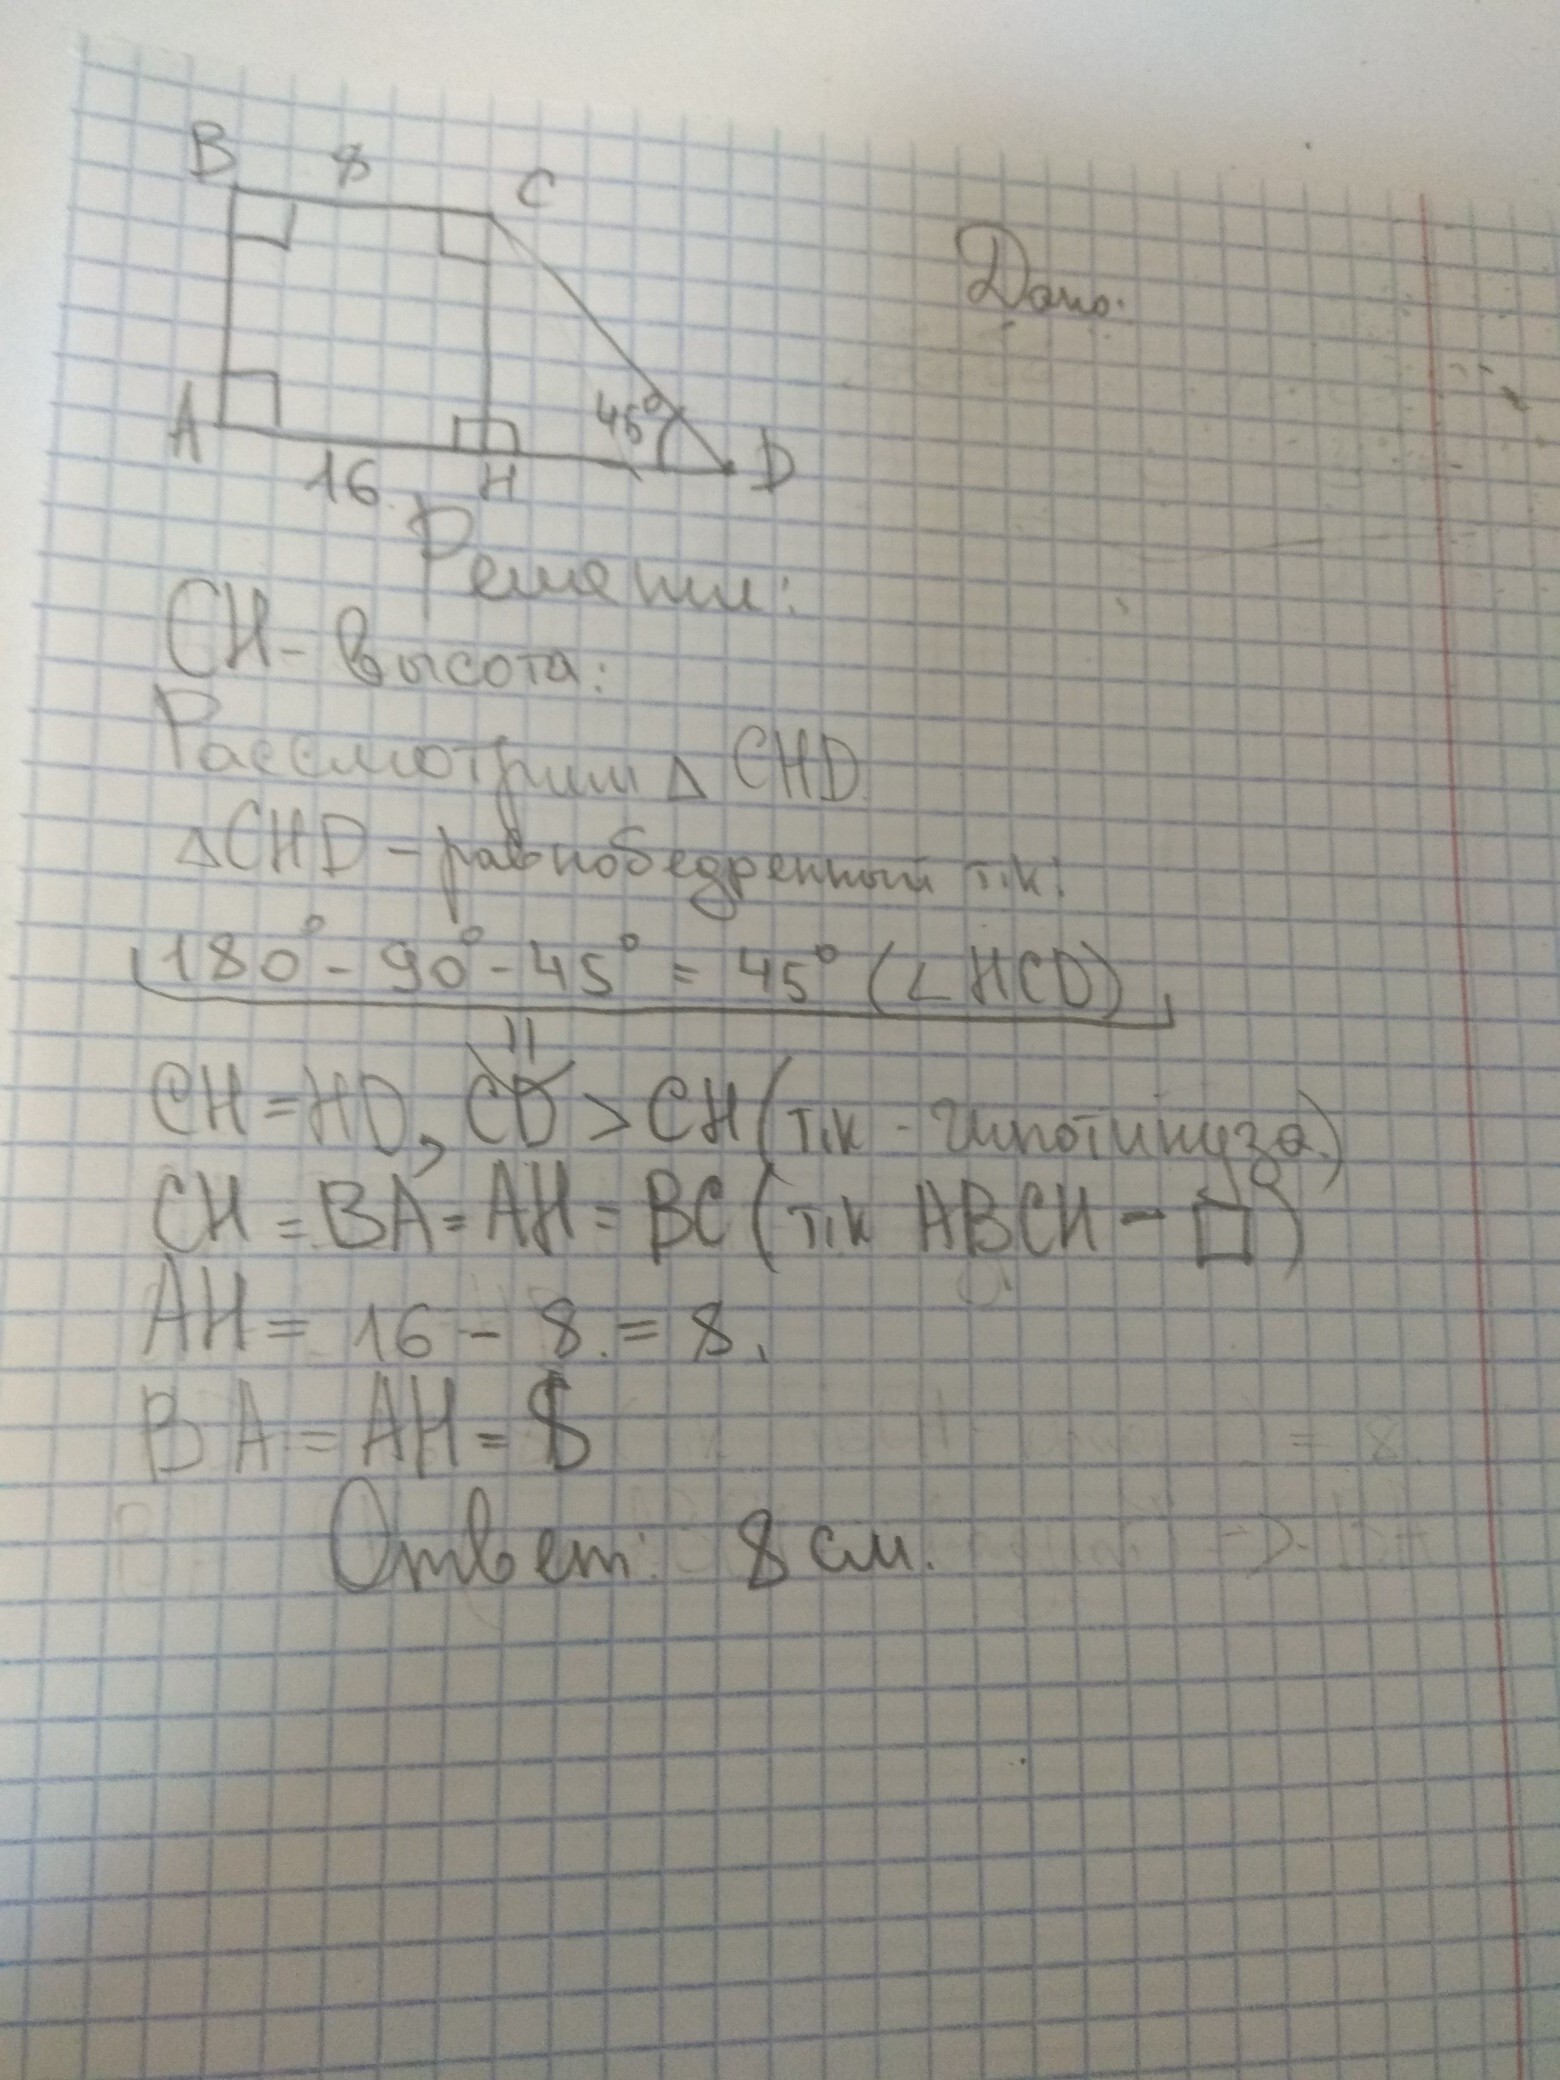 B 8 C
Дано:
45°
A 16 H D
Решение:
CH - высота:
Рассмотрим △ CHD.
△CHD - равнобедренный т.к:
180° - 90° - 45° = 45° (∠ HCD)
CH = HD, CD > CH (т.к - гипотинуза.)
CH = BA = AH = BC (т.к ABCH - □)
AH = 16 - 8 = 8.
BA = AH = 8
Ответ: 8 см.